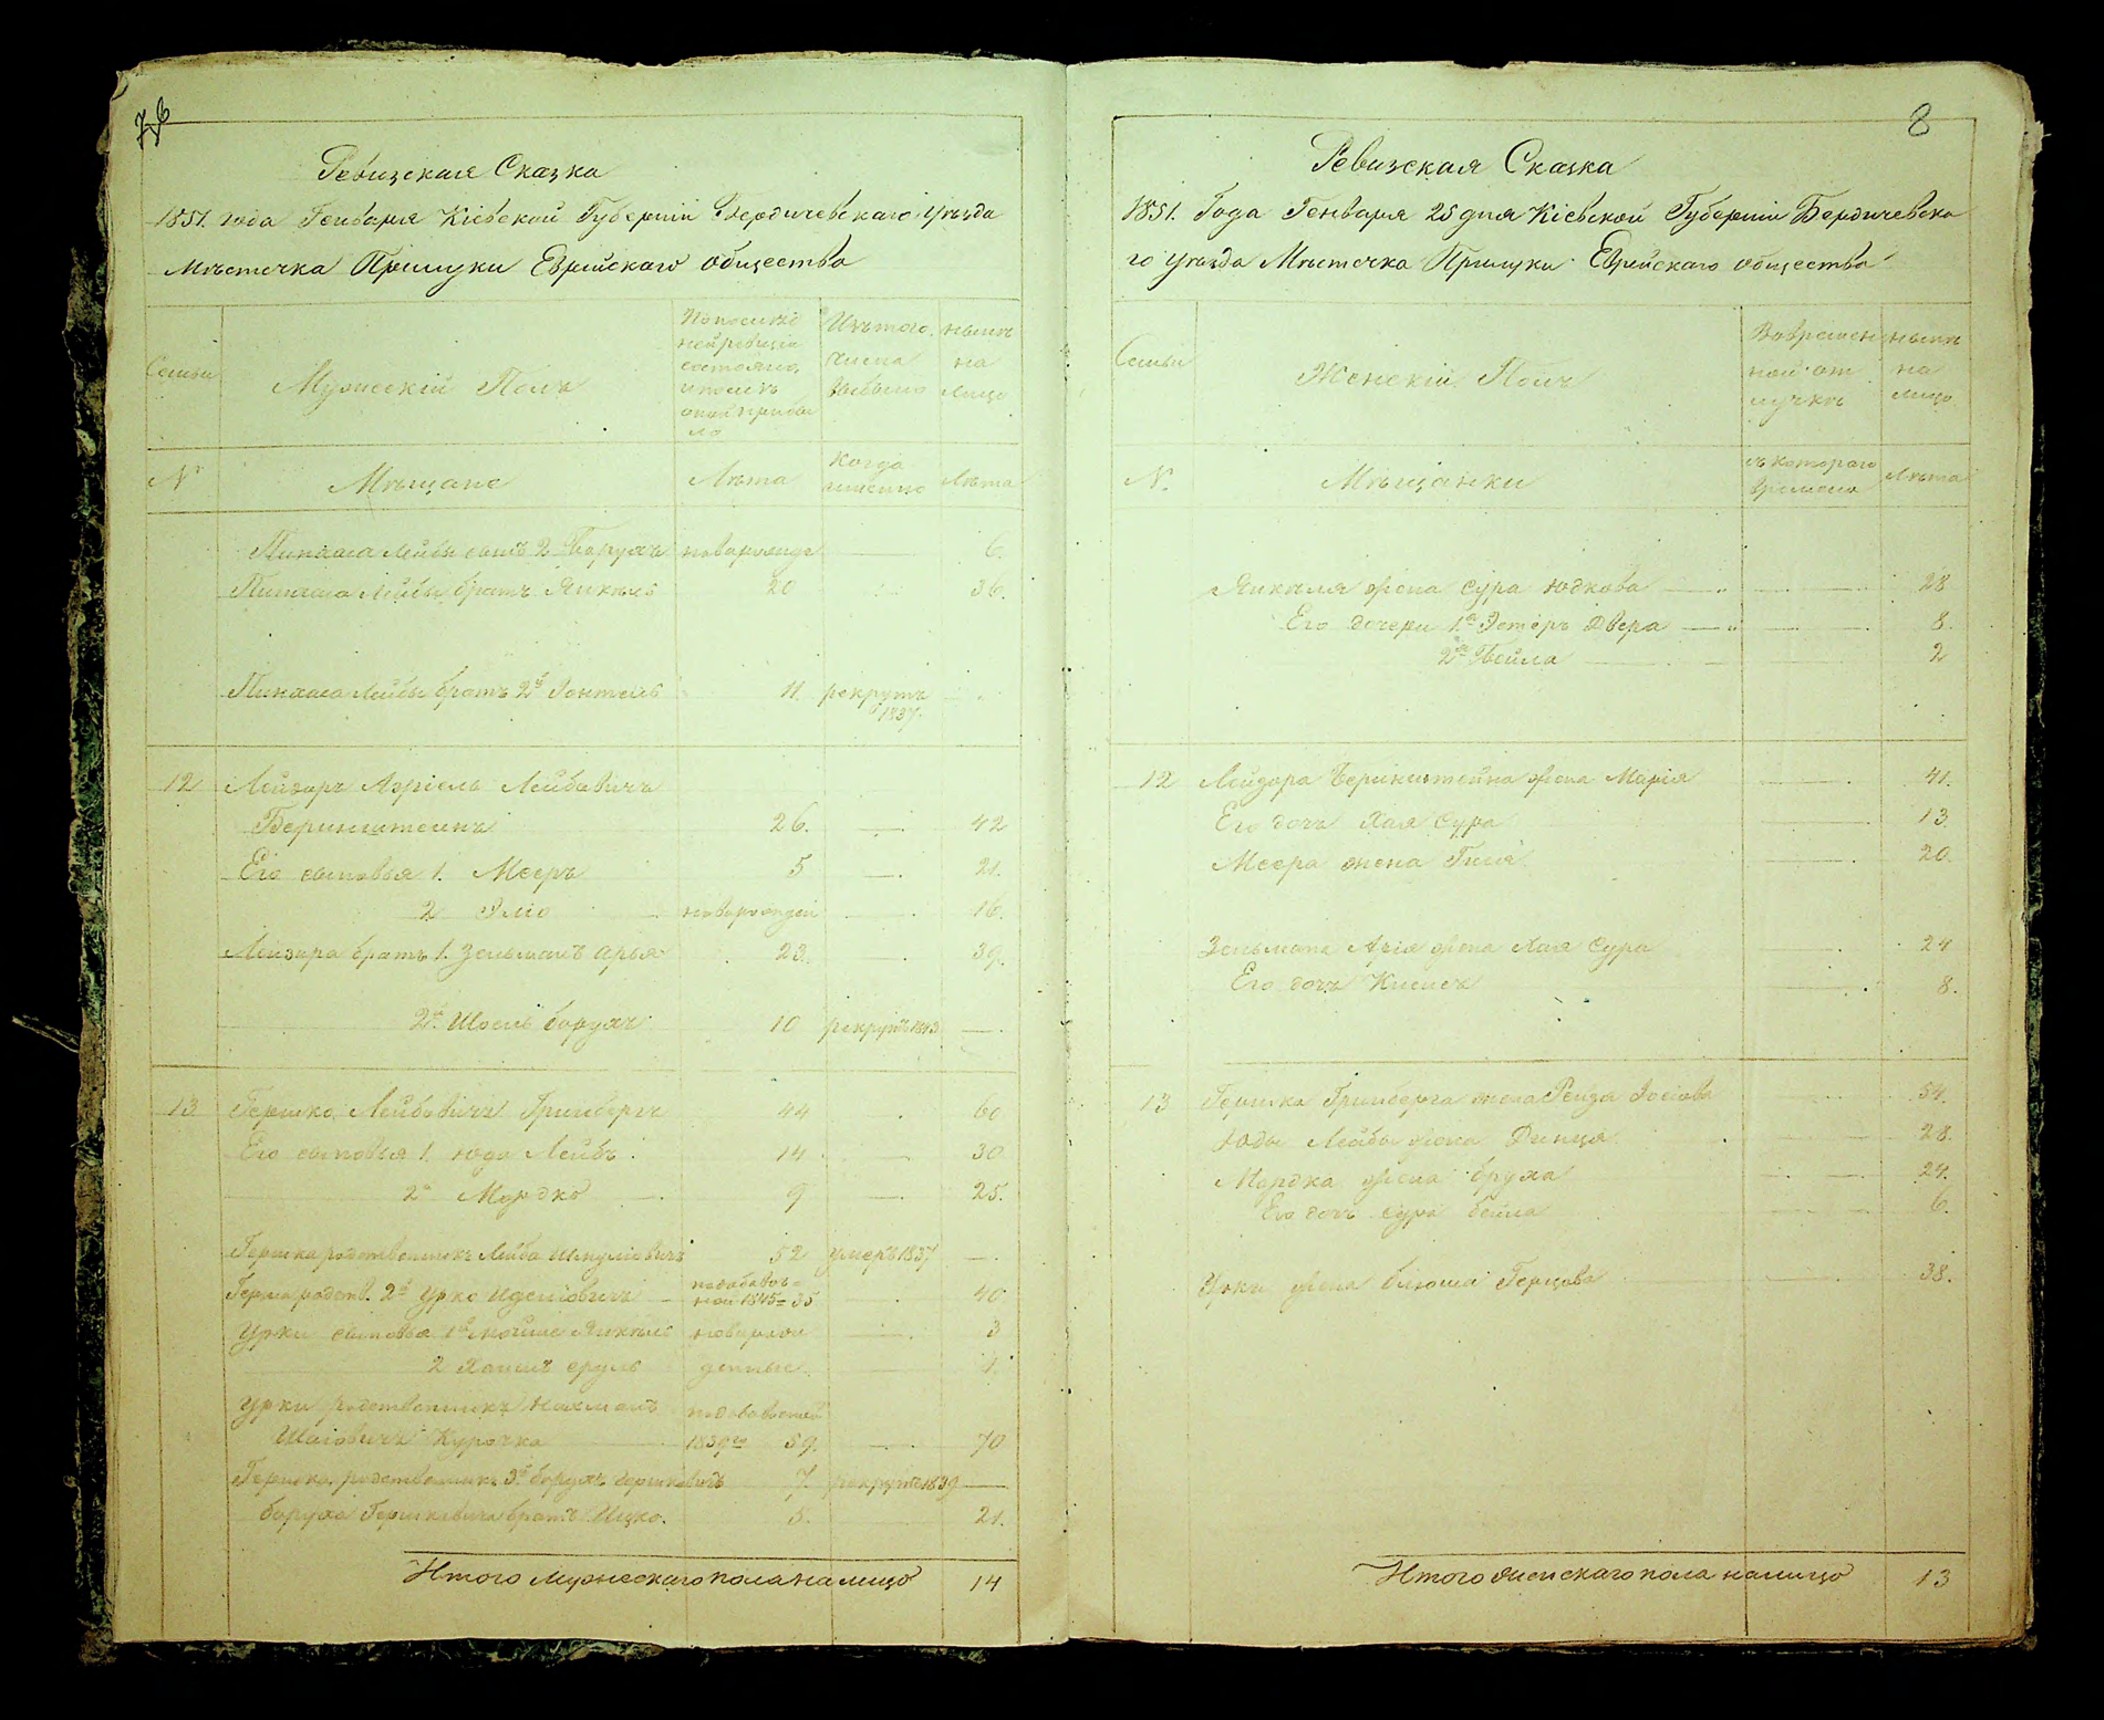 76
Ревизская Сказка
1851. года Генваря Кіевской Губерніи Бердичевскаго Уѣзда
Мѣстечка Прилуки Еврейскаго общества
Семьи
Мужескій Полъ
По послѣдней ревизіи состояло, и послѣ оной прибыло
Изъ того числа выбыло
Нынѣ на лицо
№
Мѣщане
Лѣта
Когда именно
Лѣта
Пинхаса Лейбы сынъ 2 Борухъ 6.
Пинхаса Лейбы братъ Янкель 20 36.
Пинхаса Лейбы братъ 2й 11. рекрутъ 1837.
12 Лейзоръ Азріель Лейбовичъ
Беринштейнъ 26. 42
Его сыновья 1. Мееръ 5 21.
2 Эліо новорожден 16.
Лейзора братъ 1. Зельманъ Арья 23. 39.
2й Шоель борухъ 10 рекрутъ 1843
13 Гершко Лейбовичъ Гринбергъ 44 60
Его сыновья 1. Юдо Лейбъ 14 30
2й Мордко 9 25.
Гершка родственникъ Лейба Шмулiовичъ 52 умеръ 1837
Герша родств. 2й Урко 1845 = 35 40
Урки сыновья 1й Мойше Янкель новорож 3
2 Хаимъ сруль денные 1.
Урки родственникъ Нахманъ
Шаiовичъ Курочка 1839го 59. 70
Гершка родственникъ 3й борухъ Гершковичъ 7. рекрутъ 1839
боруха Гершковича братъ Ицко. 5. 21.
Итого мужескаго пола на лицо 14
8
Ревизская Сказка
1851. Года Генваря 25 дня Кіевской Губерніи Бердичевска
го уѣзда Мѣстечка Прилуки Еврейскаго общества
Семьи
Женскій Полъ
Вовременной отлучкѣ
Нынѣ на лицо
№
Мѣщанки
съ котораго времени
Лѣта
Янкеля жена Сура Юдкова 28
Его дочери 1я Эстеръ Двера 8.
2я Бейла 2
12 Лейзора Беринштейна жена Марія 41.
Его дочь Хая Сура 13
Меера жена 20.
Зельмана жена Хая Сура 24
Его дочь 8.
13 Гершка Гринберга жена Рейзя 54.
Юды Лейбы жена 28.
Мордка жена бруха 24.
Его дочь сура бейла 6.
Урки жена Герцова 38.
Итого женскаго пола налицо 13